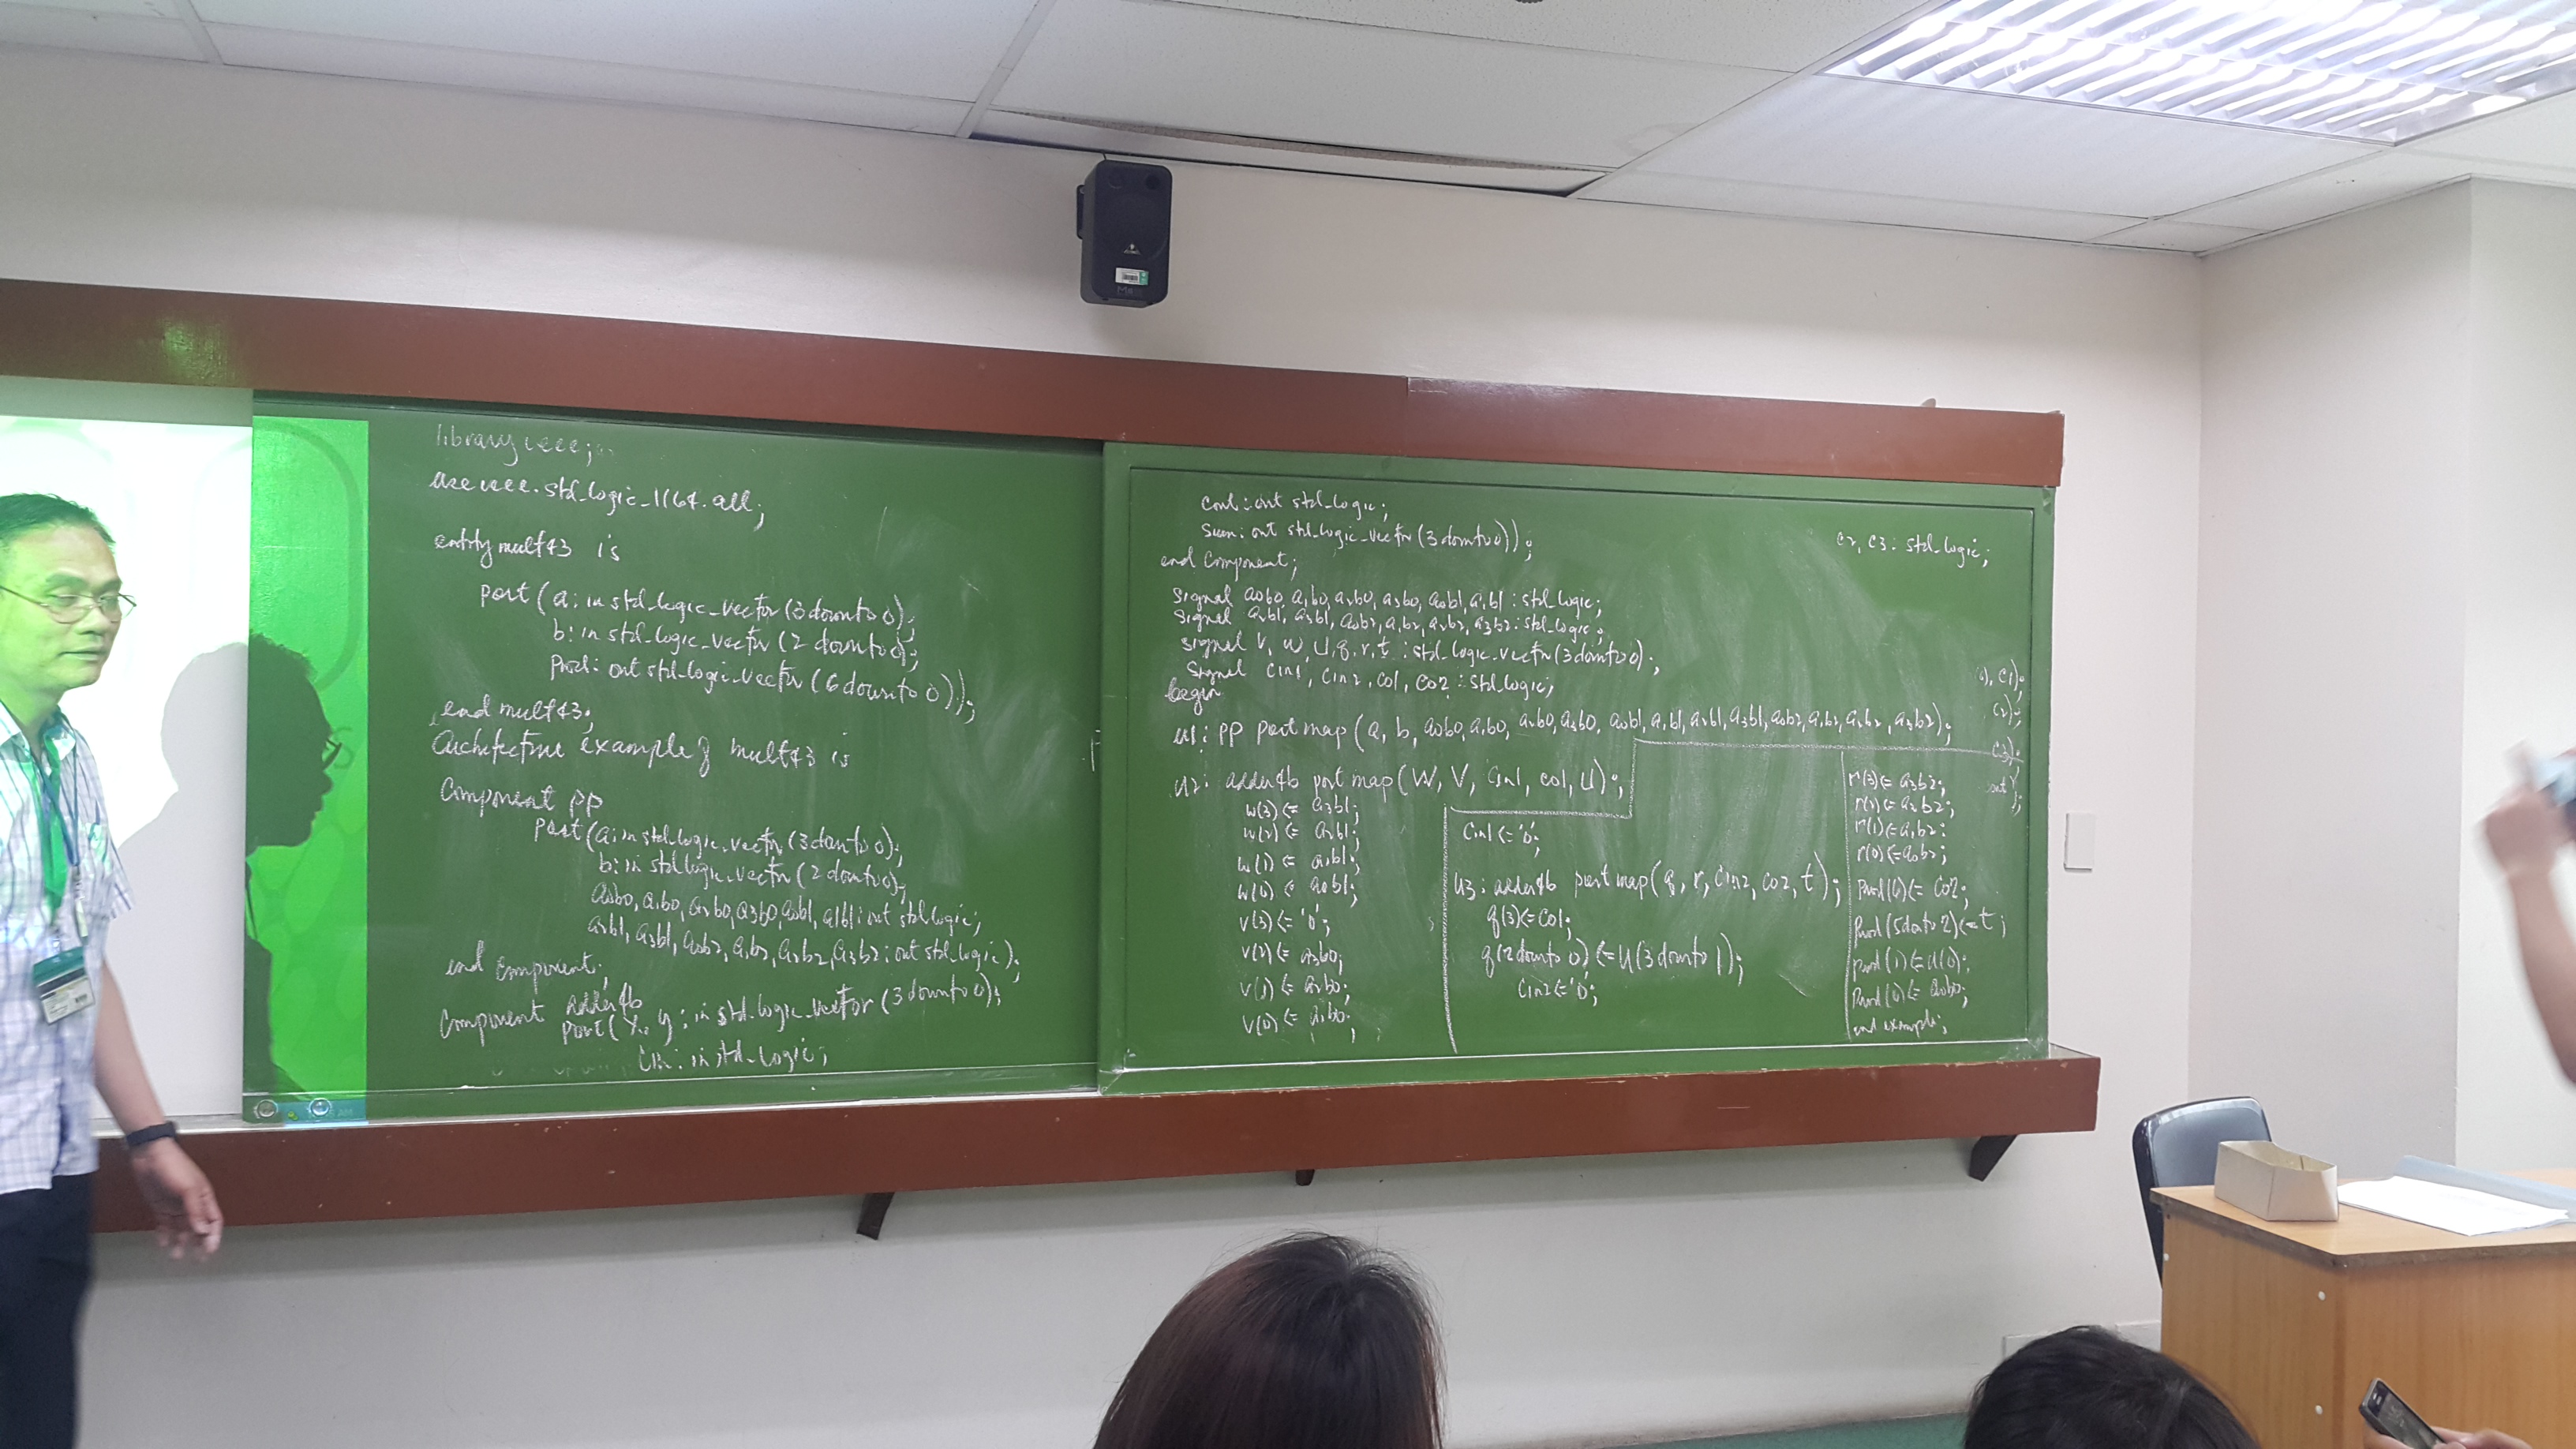 library ieee;
use ieee.std_logic_1164.all;
entity mult43 is
port(a: in std_logic_vector(3 downto 0);
b: in std_logic_vector(2 downto 0);
prod: out std_logic_vector(6 downto 0));
end mult43;
Architecture example of mult43 is
Component pp
port(a: in std_logic_vector(3 downto 0);
b: in std_logic_vector(2 downto 0);
a0b0, a1b0, a2b0, a3b0, a0b1, a1b1: out std_logic;
a2b1, a3b1, a0b2, a1b2, a2b2, a3b2: out std_logic);
end component;
Component adder4b
port(x, y: in std_logic_vector(3 downto 0);
cin: in std_logic;
cout: out std_logic;
Sum: out std_logic_vector(3 downto 0));
end Component;
signal a0b0, a1b0, a2b0, a3b0, a0b1, a1b1: std_logic;
signal a2b1, a3b1, a0b2, a1b2, a2b2, a3b2: std_logic;
signal v, w, u, q, r, t: std_logic_vector(3 downto 0);
signal cin1, cin2, co1, co2: std_logic;
begin
u1: pp port map(a, b, a0b0, a1b0, a2b0, a3b0, a0b1, a1b1, a2b1, a3b1, a0b2, a1b2, a2b2, a3b2);
u2: adder4b port map(w, v, cin1, co1, u);
w(3) <= a3b1;
w(2) <= a2b1;
w(1) <= a1b1;
w(0) <= a0b1;
v(3) <= '0';
v(2) <= a3b0;
v(1) <= a2b0;
v(0) <= a1b0;
cin1 <= '0';
u3: adder4b port map(q, r, cin2, co2, t);
q(3) <= co1;
q(2 downto 0) <= u(3 downto 1);
cin2 <= '0';
r(3) <= a3b2;
r(2) <= a2b2;
r(1) <= a1b2;
r(0) <= a0b2;
prod(6) <= co2;
prod(5 dato 2) <= t;
prod(1) <= u(0);
prod(0) <= a0b0;
end example;
c2, c3: std_logic;
c1);
c2);
c3);
out);